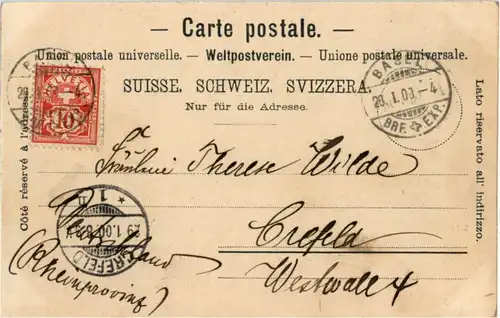 — Carte postale. —
Union postale universelle. — Weltpostverein. — Unione postale universale.
SUISSE. SCHWEIZ. SVIZZERA.
Nur für die Adresse.
Côté réservé à l'adresse.
Lato riservato all' indirizzo.
HELVETIA
10
BASEL
28.I.00.-4
BRF. EXP.
Fräulein Therese Wilde
Crefeld
Westwall 4
(Rheinprovinz)
CREFELD
29.1.00
* 1 n